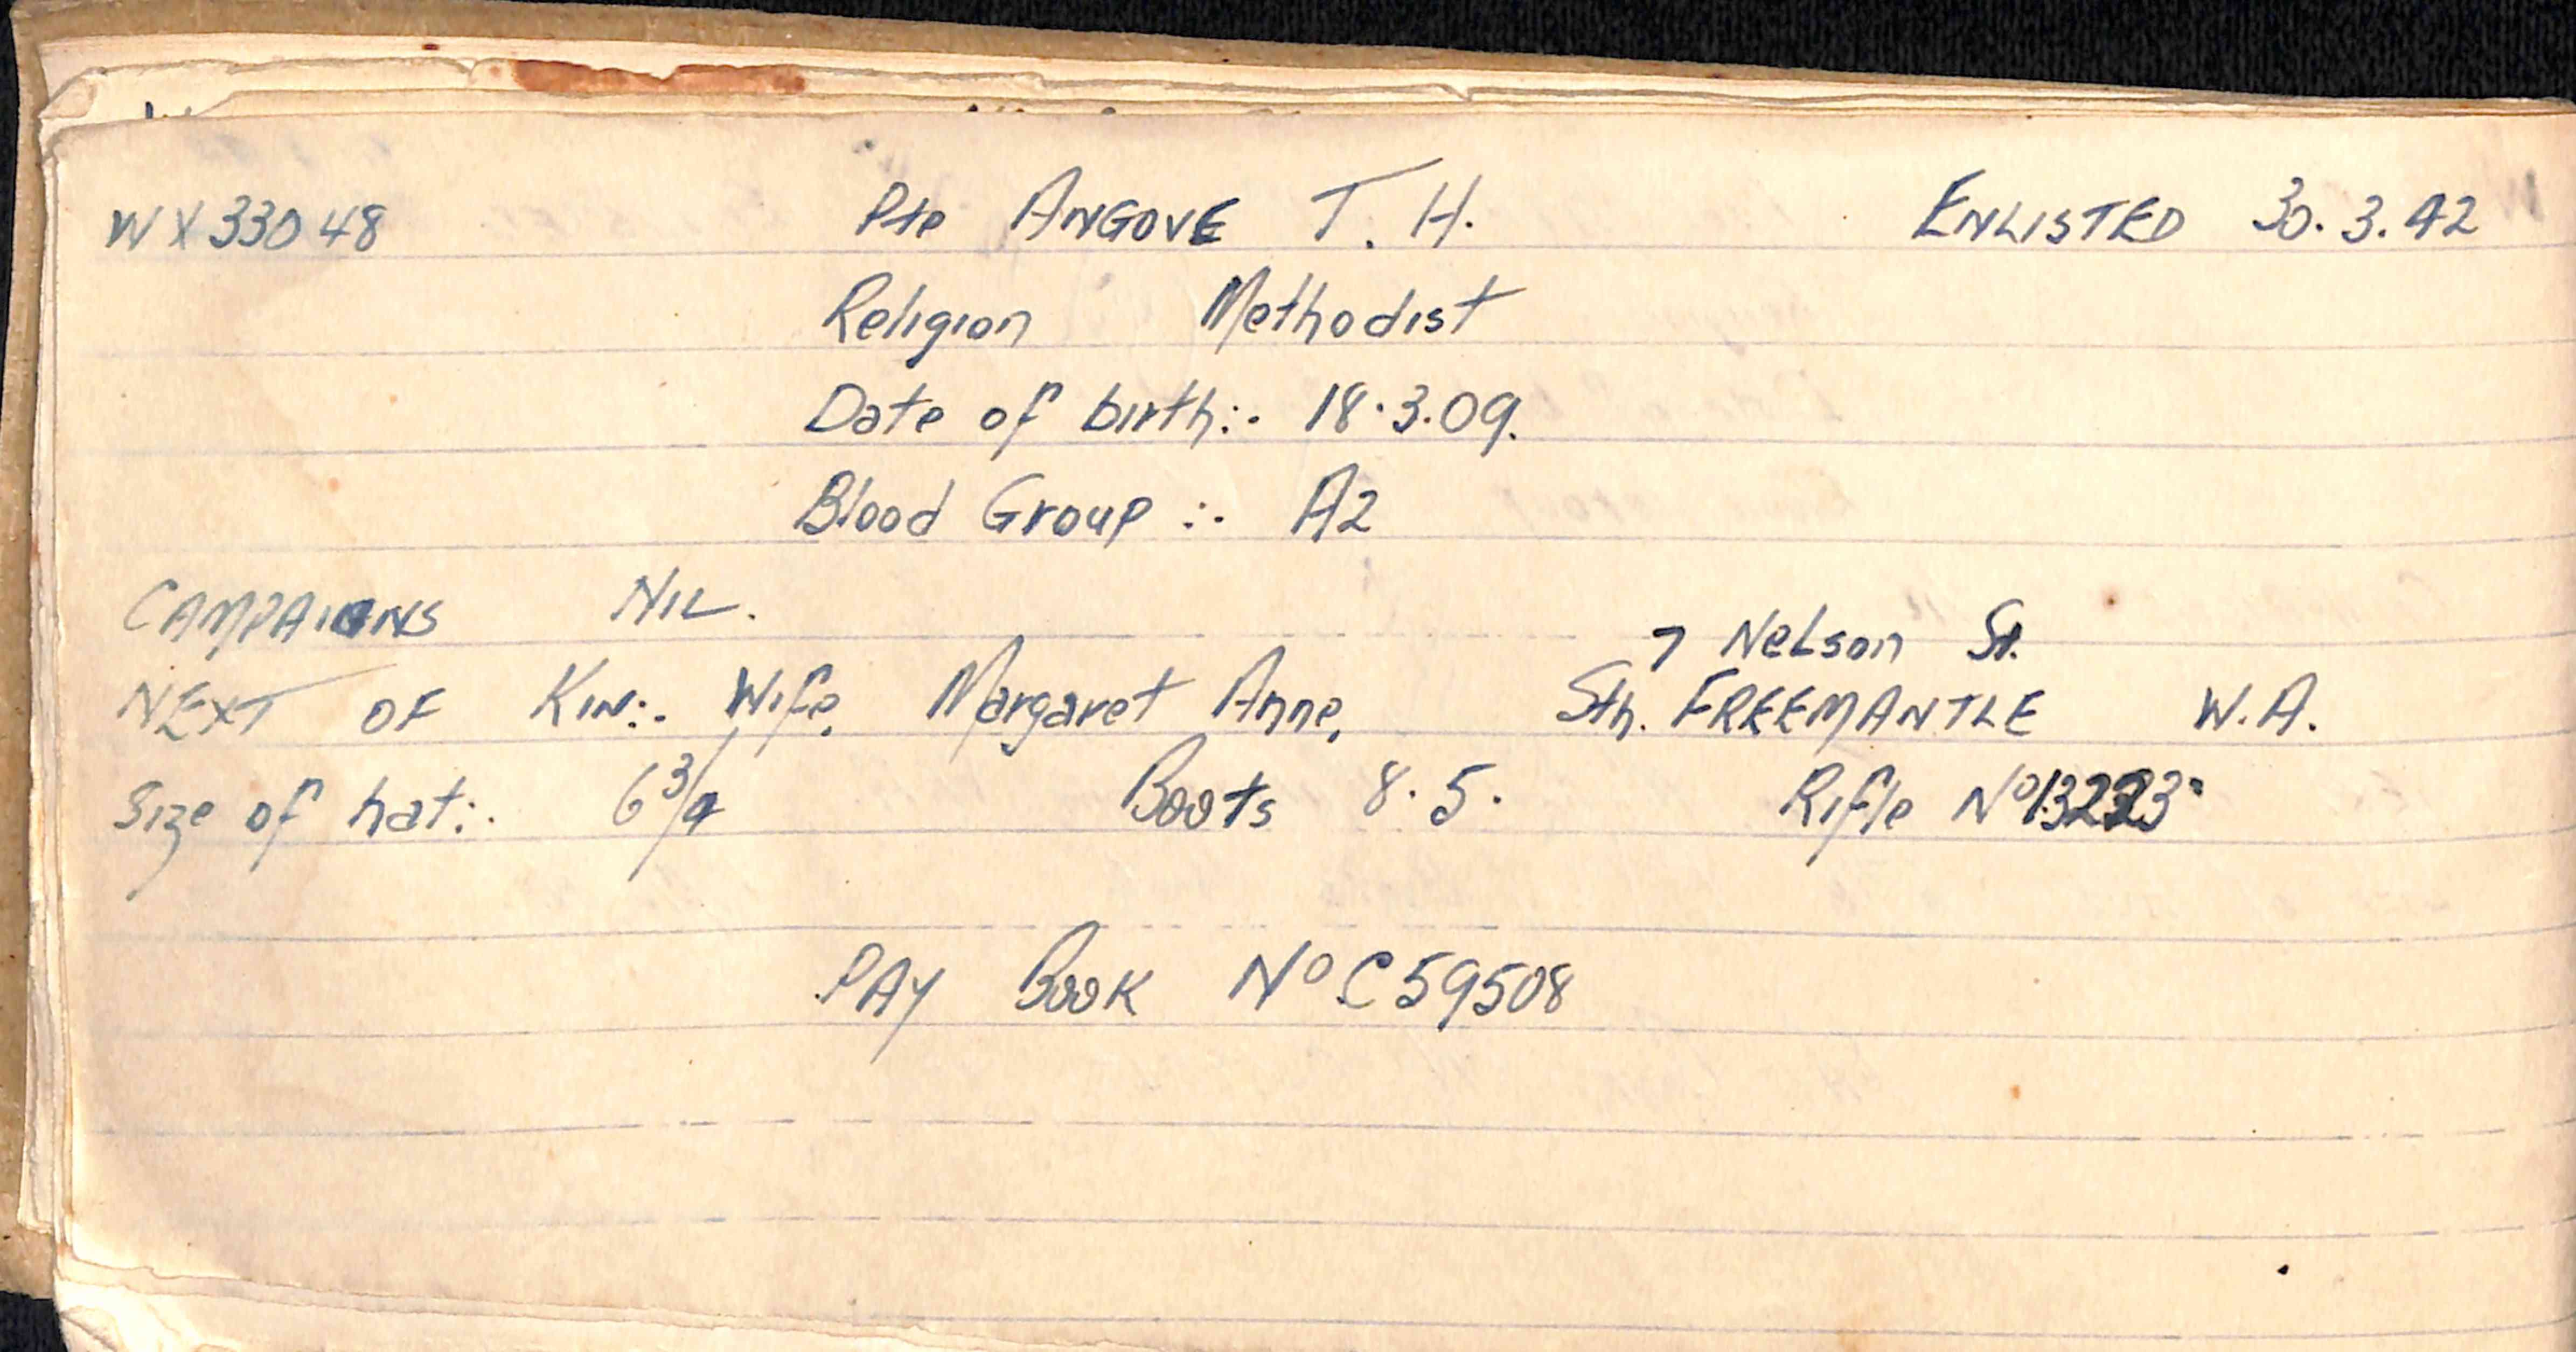 WX33048 Pte ANGOVE T. H. ENLISTED 30.3.42
Religion Methodist
Date of birth:. 18.3.09.
Blood Group :. A2
CAMPAIGNS NIL.
7 NeLson St.
NEXT OF KIN:. Wife, Margaret Anne, Sth. FREEMANTLE W.A.
Size of hat:. 6 3/4 Boots 8.5. Rifle Nº
PAY BOOK Nº C59508